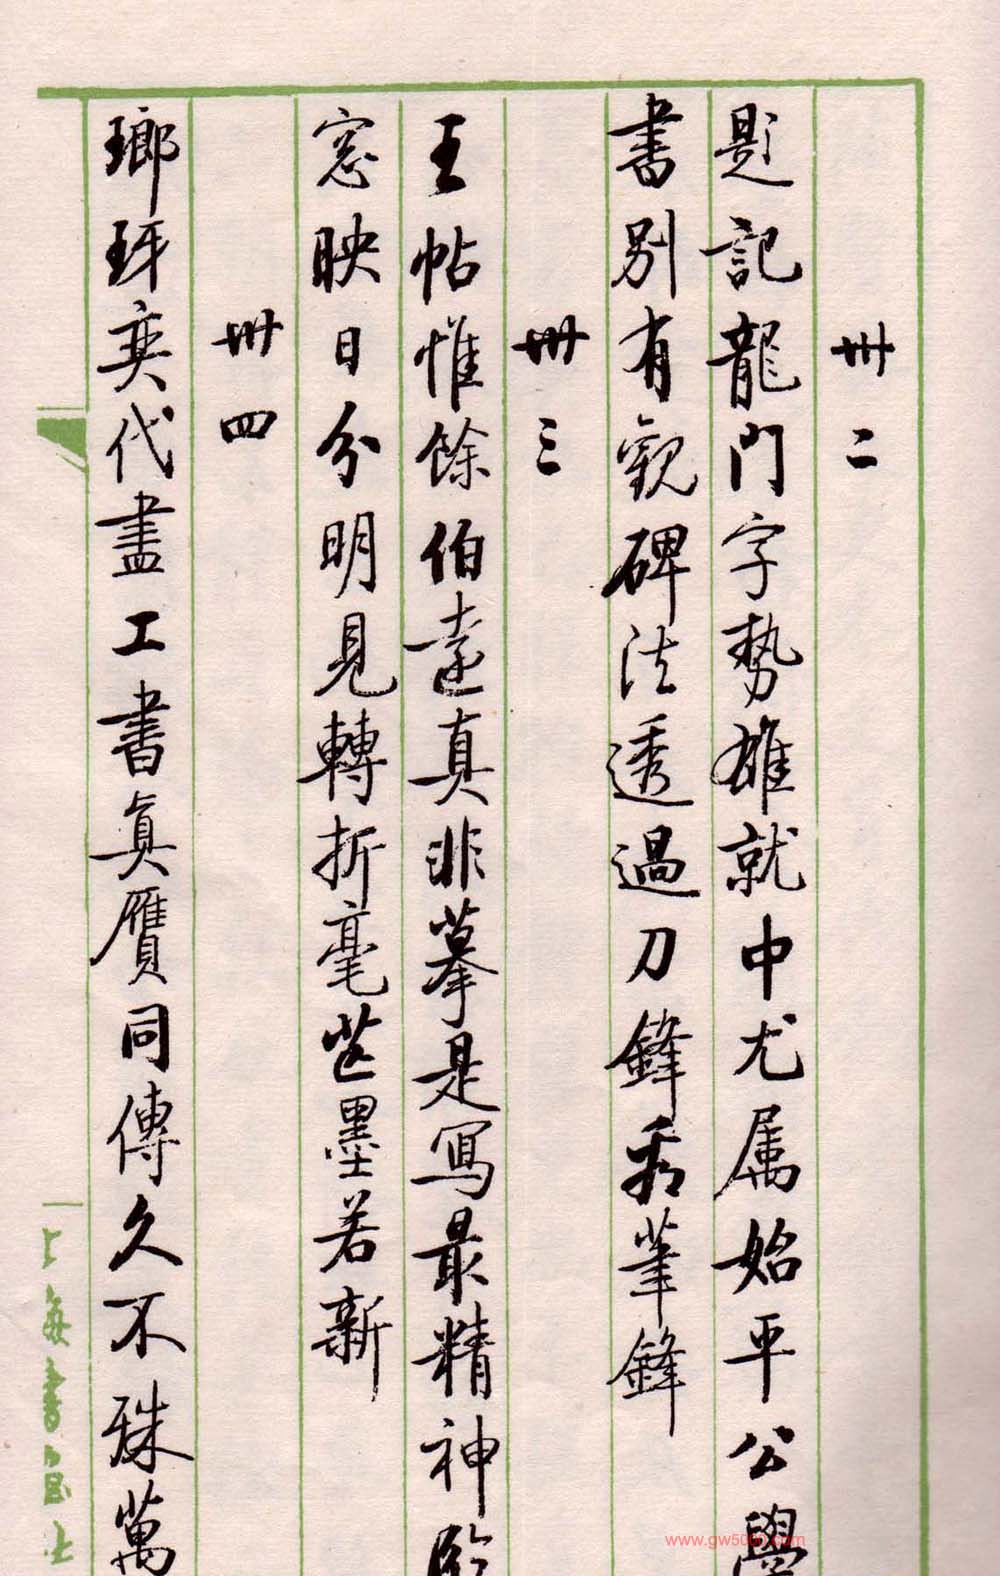 卅二
題記龍門字勢雄就中尤属始平公學
書別有觀碑法透過刀鋒看筆鋒
卅三
王帖惟餘伯遠真非摹是寫最精神臨
窓映日分明見轉折毫芒墨若新
卅四
瑯玡奕代盡工書真贗同傳久不殊萬
上海書画社
www.gw5000.com